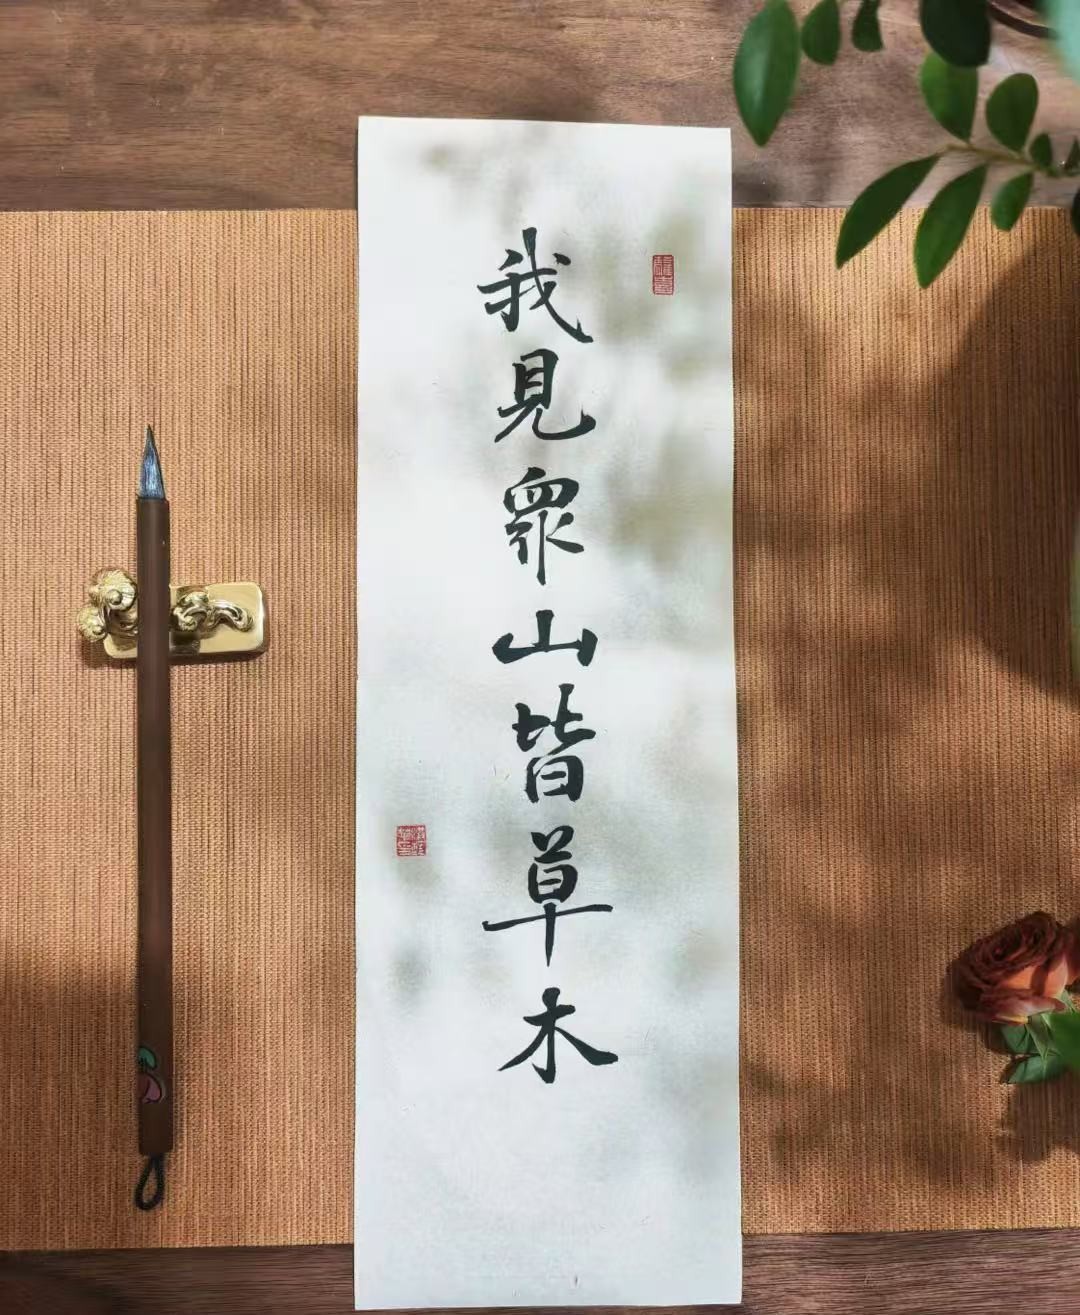 我見眾山皆草木